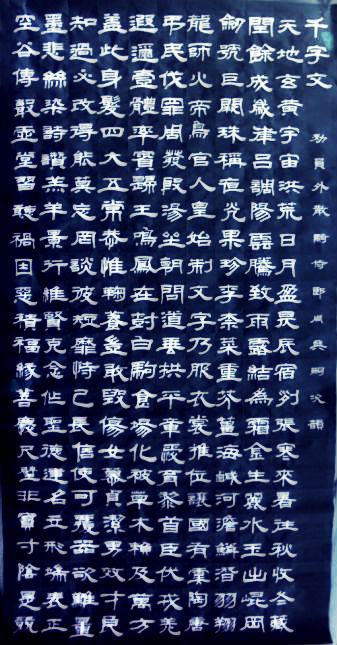 千字文
勑員外散騎侍郎周興嗣次韻
天地玄黃宇宙洪荒日月盈昃辰宿列張寒來暑往秋收冬藏
閏餘成歲律呂調陽雲騰致雨露結為霜金生麗水玉出崐岡
劒號巨闕珠稱夜光果珍李柰菜重芥薑海鹹河澹鱗潛羽翔
龍師火帝鳥官人皇始制文字乃服衣裳推位讓國有虞陶唐
弔民伐罪周發殷湯坐朝問道垂拱平章愛育黎首臣伏戎羌
遐邇壹體率賓歸王鳴鳳在樹白駒食場化被草木賴及萬方
蓋此身髮四大五常恭惟鞠養豈敢毀傷女慕貞潔男效才良
知過必改得能莫忘罔談彼短靡恃己長信使可覆器欲難量
墨悲絲染詩讚羔羊景行維賢克念作聖德建名立形端表正
空谷傳聲虛堂習聽禍因惡積福緣善慶尺璧非寶寸陰是競